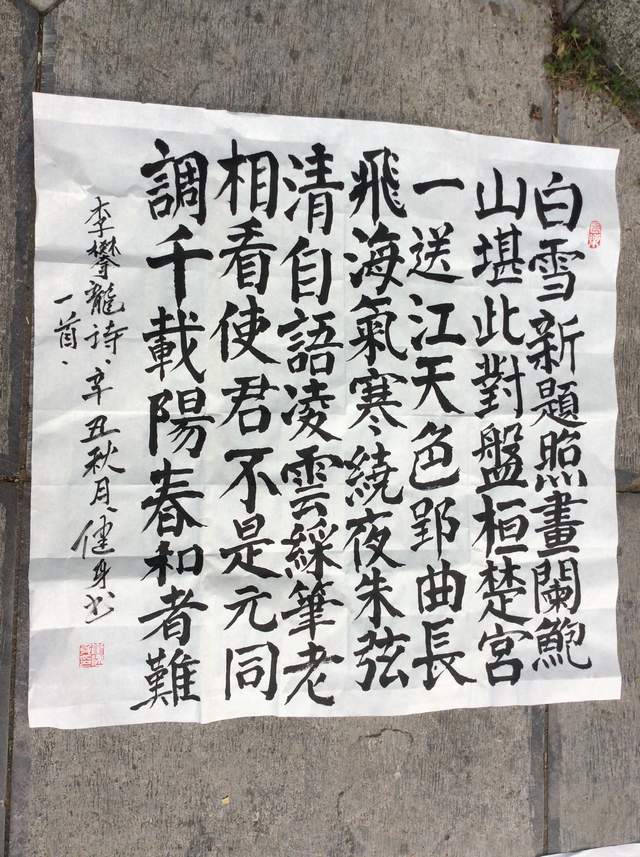 白雪新題照畫闌鮑
山堪此對盤桓楚宮
一送江天色郢曲長
飛海氣寒繞夜朱弦
清自語凌雲綵筆老
相看使君不是元同
調千載陽春和者難
李攀龍詩辛丑秋月健身书
一首